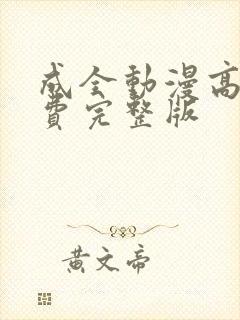 成全動漫高
費完整版
黃文帝